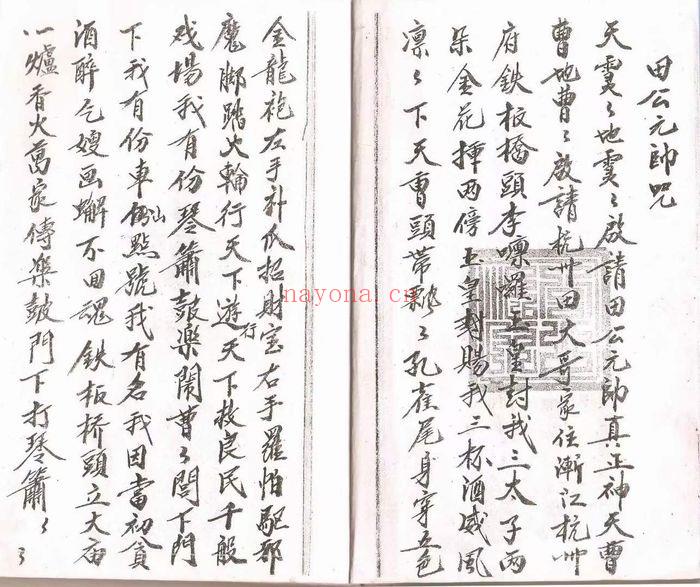 田公元帥咒
天靈〻地靈〻啟請田公元帥真正神天曹
曹地曹〻啟請杭州田大哥家住浙江杭州
府鉄板橋頭李㖫囉玉皇封我三太子兩
朵金花揷兩傍玉皇封賜我三杯酒威風
凛〻下天曹頭帶〻孔雀尾身穿五色
金龍袍左手計爪招財宝右手羅怕駆邪
魔脚踏火輪行天下遊行天下救良民千般
戏場我有份琴簫鼓樂鬧曹〻閭下門
下我有份車仙點號我有名我因當初貪
酒醉乞嫂画蠏不回魂鉄板桥頭立大庙
一爐香火萬家傳樂鼓門下打琴簫〻
nayona.cn